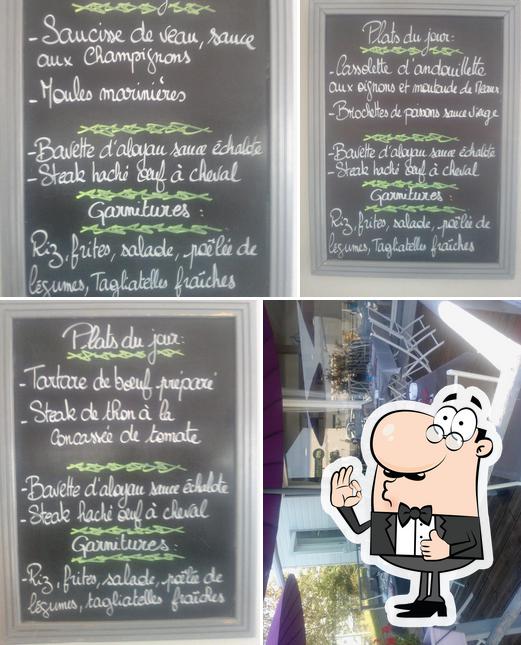 - Saucisse de veau, sauce
aux Champignons
- Moules marinières
- Bavette d'aloyau sauce échalote
- Steak haché œuf à cheval
Garnitures :
Riz, frites, salade, poêlée de
légumes, Tagliatelles fraîches
Plats du jour :
- Cassolette d'andouillette
aux oignons et moutarde de Meaux
- Brochettes de poissons sauce vierge
- Bavette d'aloyau sauce échalote
- Steak haché œuf à cheval
Garnitures :
Riz, frites, salade, poêlée de
légumes, Tagliatelles fraîches
Plats du jour :
- Tartare de bœuf préparé
- Steak de thon à la
Concassée de tomate
- Bavette d'aloyau sauce échalote
- Steak haché œuf à cheval
Garnitures :
- Riz, frites, salade, poêlée de
légumes, tagliatelles fraîches